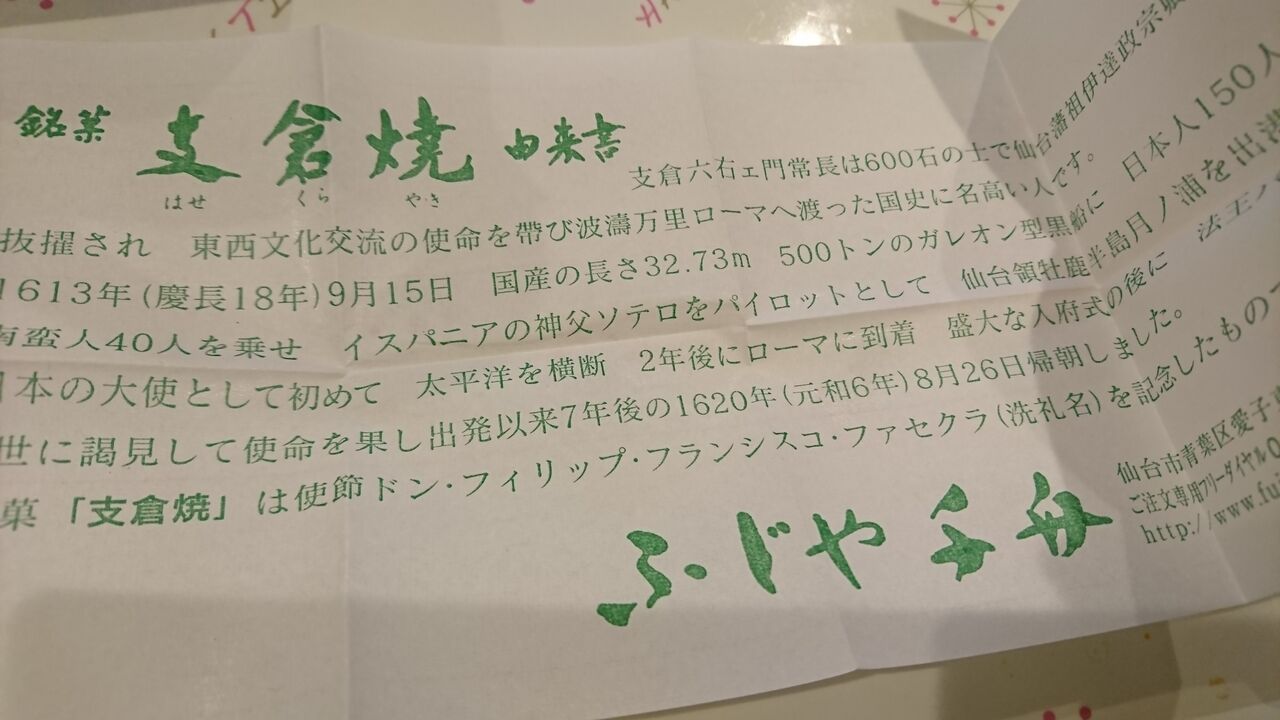 銘菓 支倉焼 由来書
はせ くら やき
支倉六右ェ門常長は600石の士で仙台藩祖伊達政宗
抜擢され 東西文化交流の使命を帯び波濤万里ローマへ渡った国史に名高い人です。
1613年(慶長18年)9月15日 国産の長さ32.73m 500トンのガレオン型黒船に 日本人150人
南蛮人40人を乗せ イスパニアの神父ソテロをパイロットとして 仙台領牡鹿半島月ノ浦を出港
日本の大使として初めて 太平洋を横断 2年後にローマに到着 盛大な入府式の後に 法王
世に謁見して使命を果し出発以来7年後の1620年(元和6年)8月26日帰朝しました。
菓「支倉焼」は使節ドン・フィリップ・フランシスコ・ファセクラ(洗礼名)を記念したもの
ふじや千舟
仙台市青葉区愛子
ご注文専用フリーダイヤル0
http://www.fu